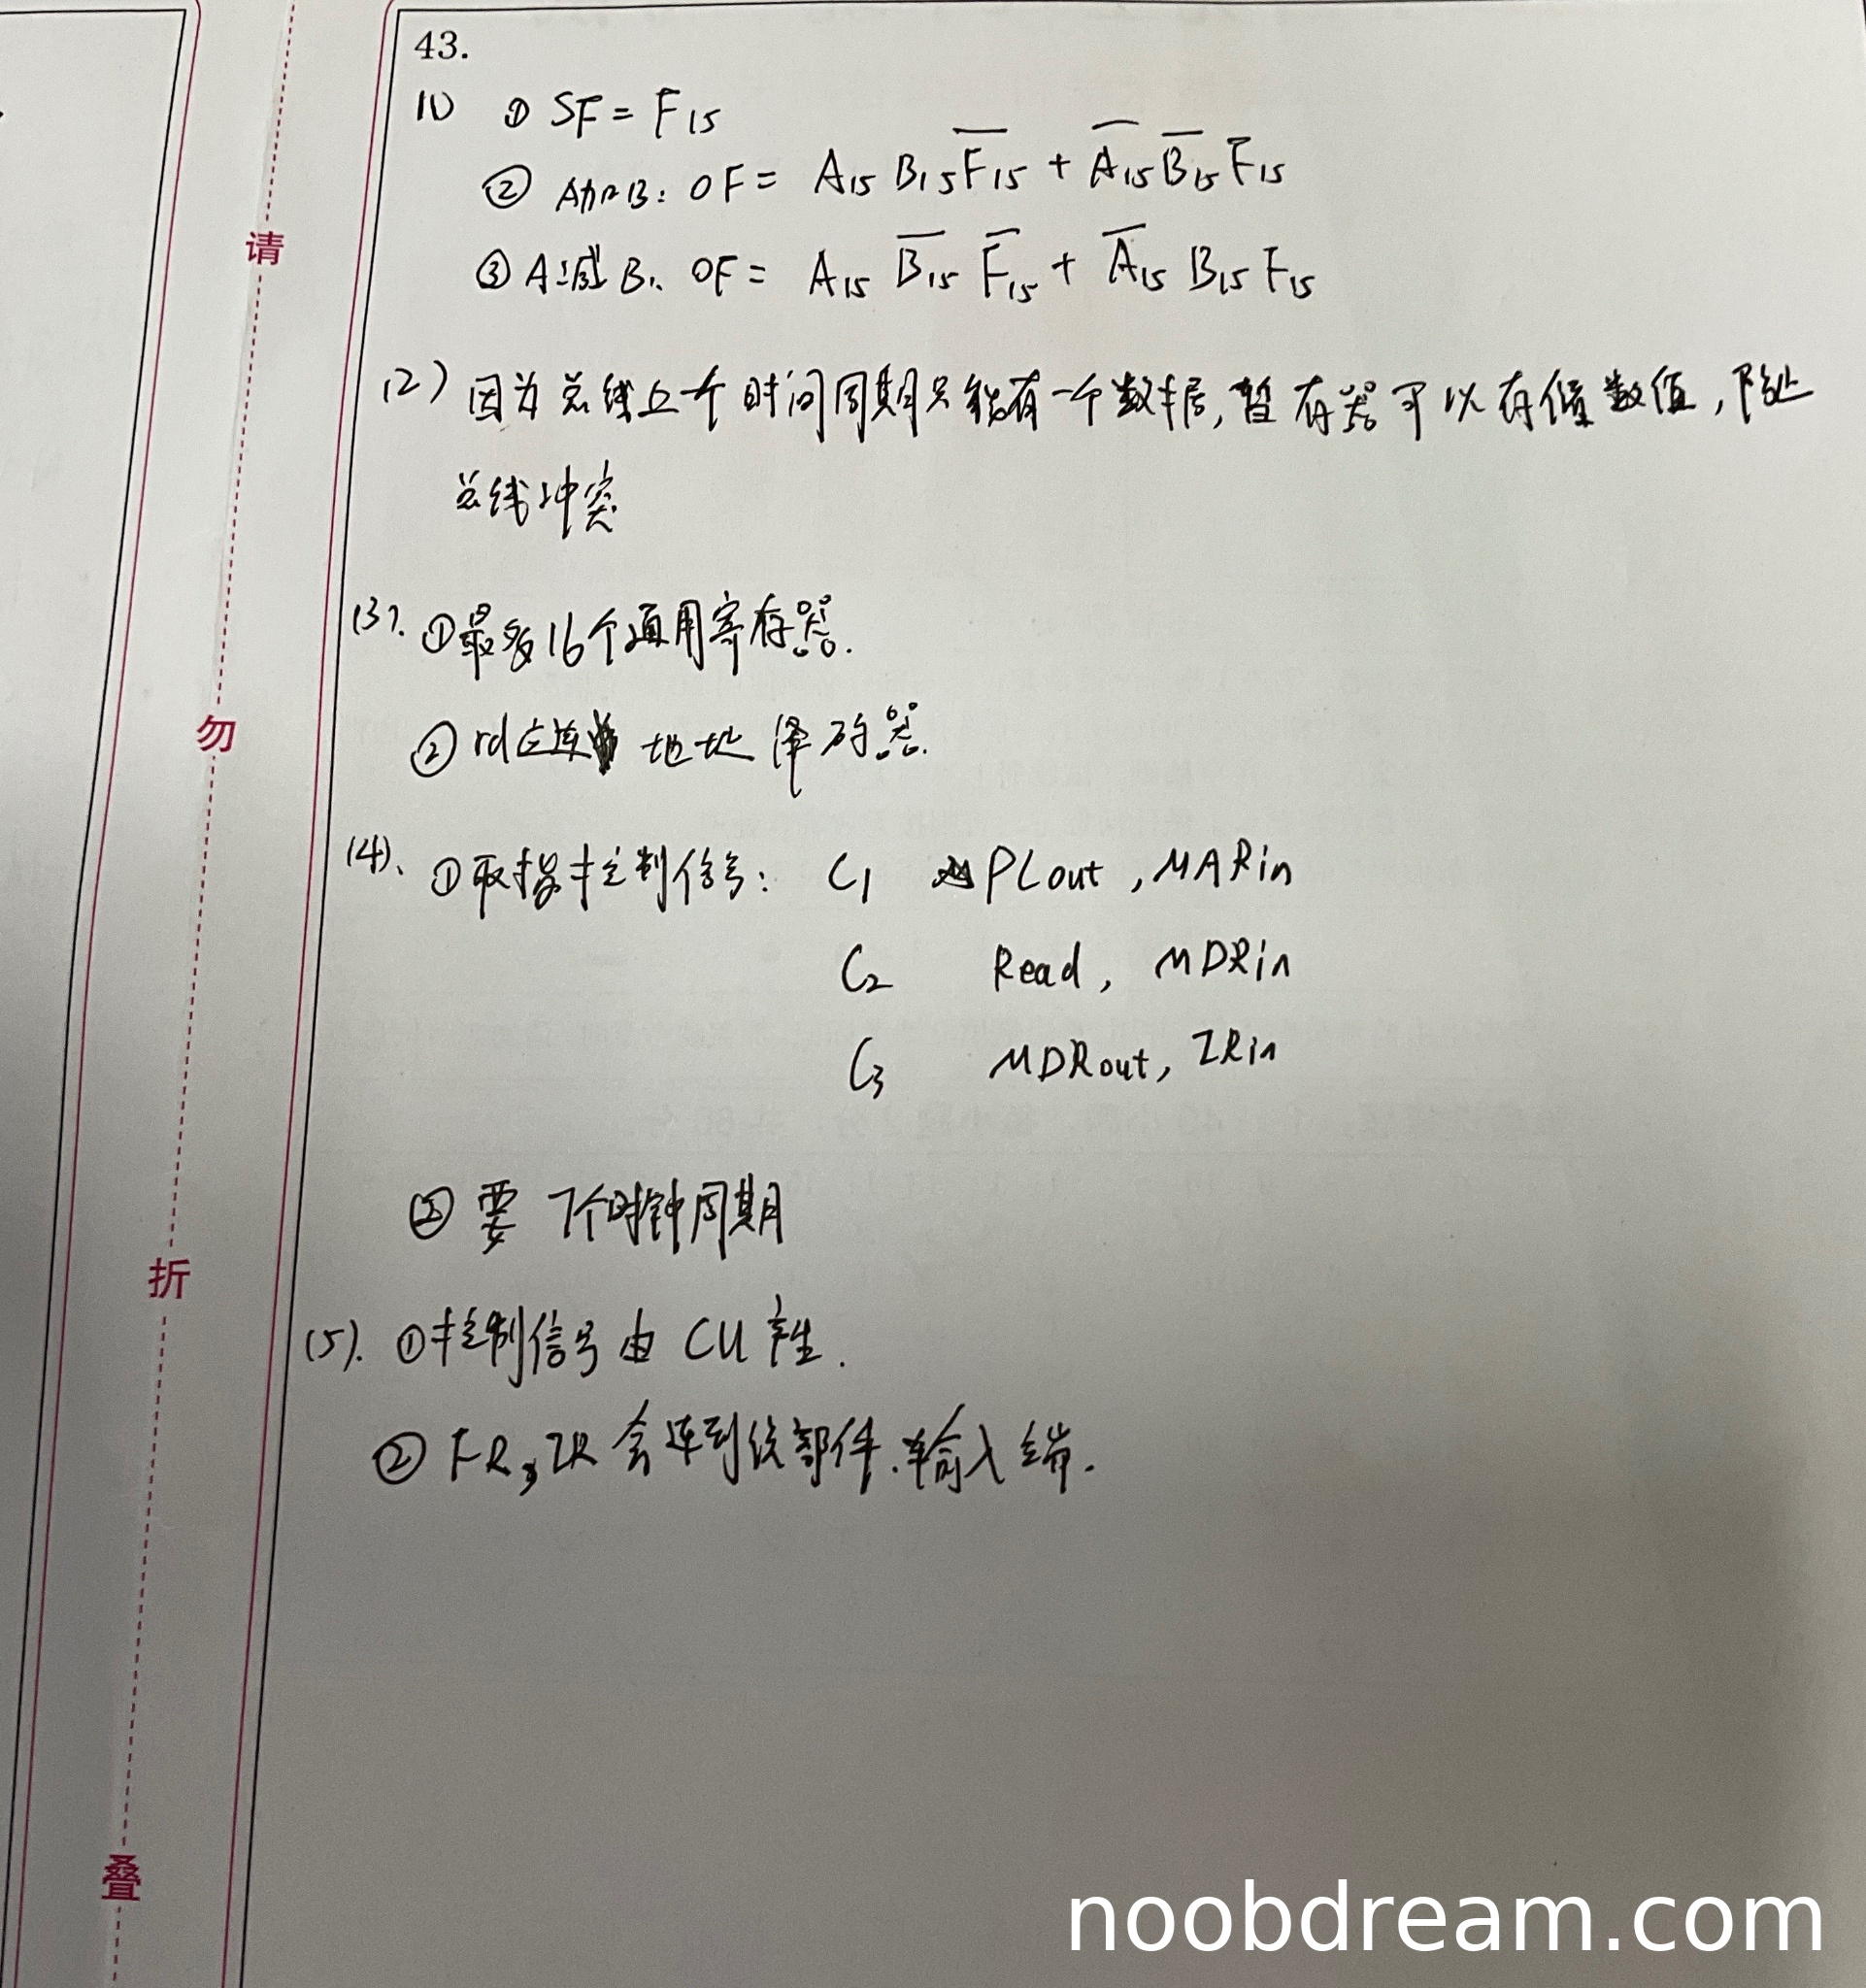 43.
(1) ① SF = F₁₅
② A加B: OF = A₁₅ B₁₅ F̅₁₅ + A̅₁₅ B̅₁₅ F₁₅
③ A减B: OF = A₁₅ B̅₁₅ F̅₁₅ + A̅₁₅ B₁₅ F₁₅
(2) 因为总线上一个时间周期只能有一个数据,暂存器可以存储数值,防止
总线冲突
(3). ①最多16个通用寄存器.
② rd应连 地址译码器.
(4). ①取指控制信号: C₁ PCout, MARin
C₂ Read, MDRin
C₃ MDRout, IRin
② 要 7个时钟周期
(5). ①控制信号由 CU 产生.
② FR, IR 会连到该部件.输入端.
请
勿
折
叠
noobdream.com